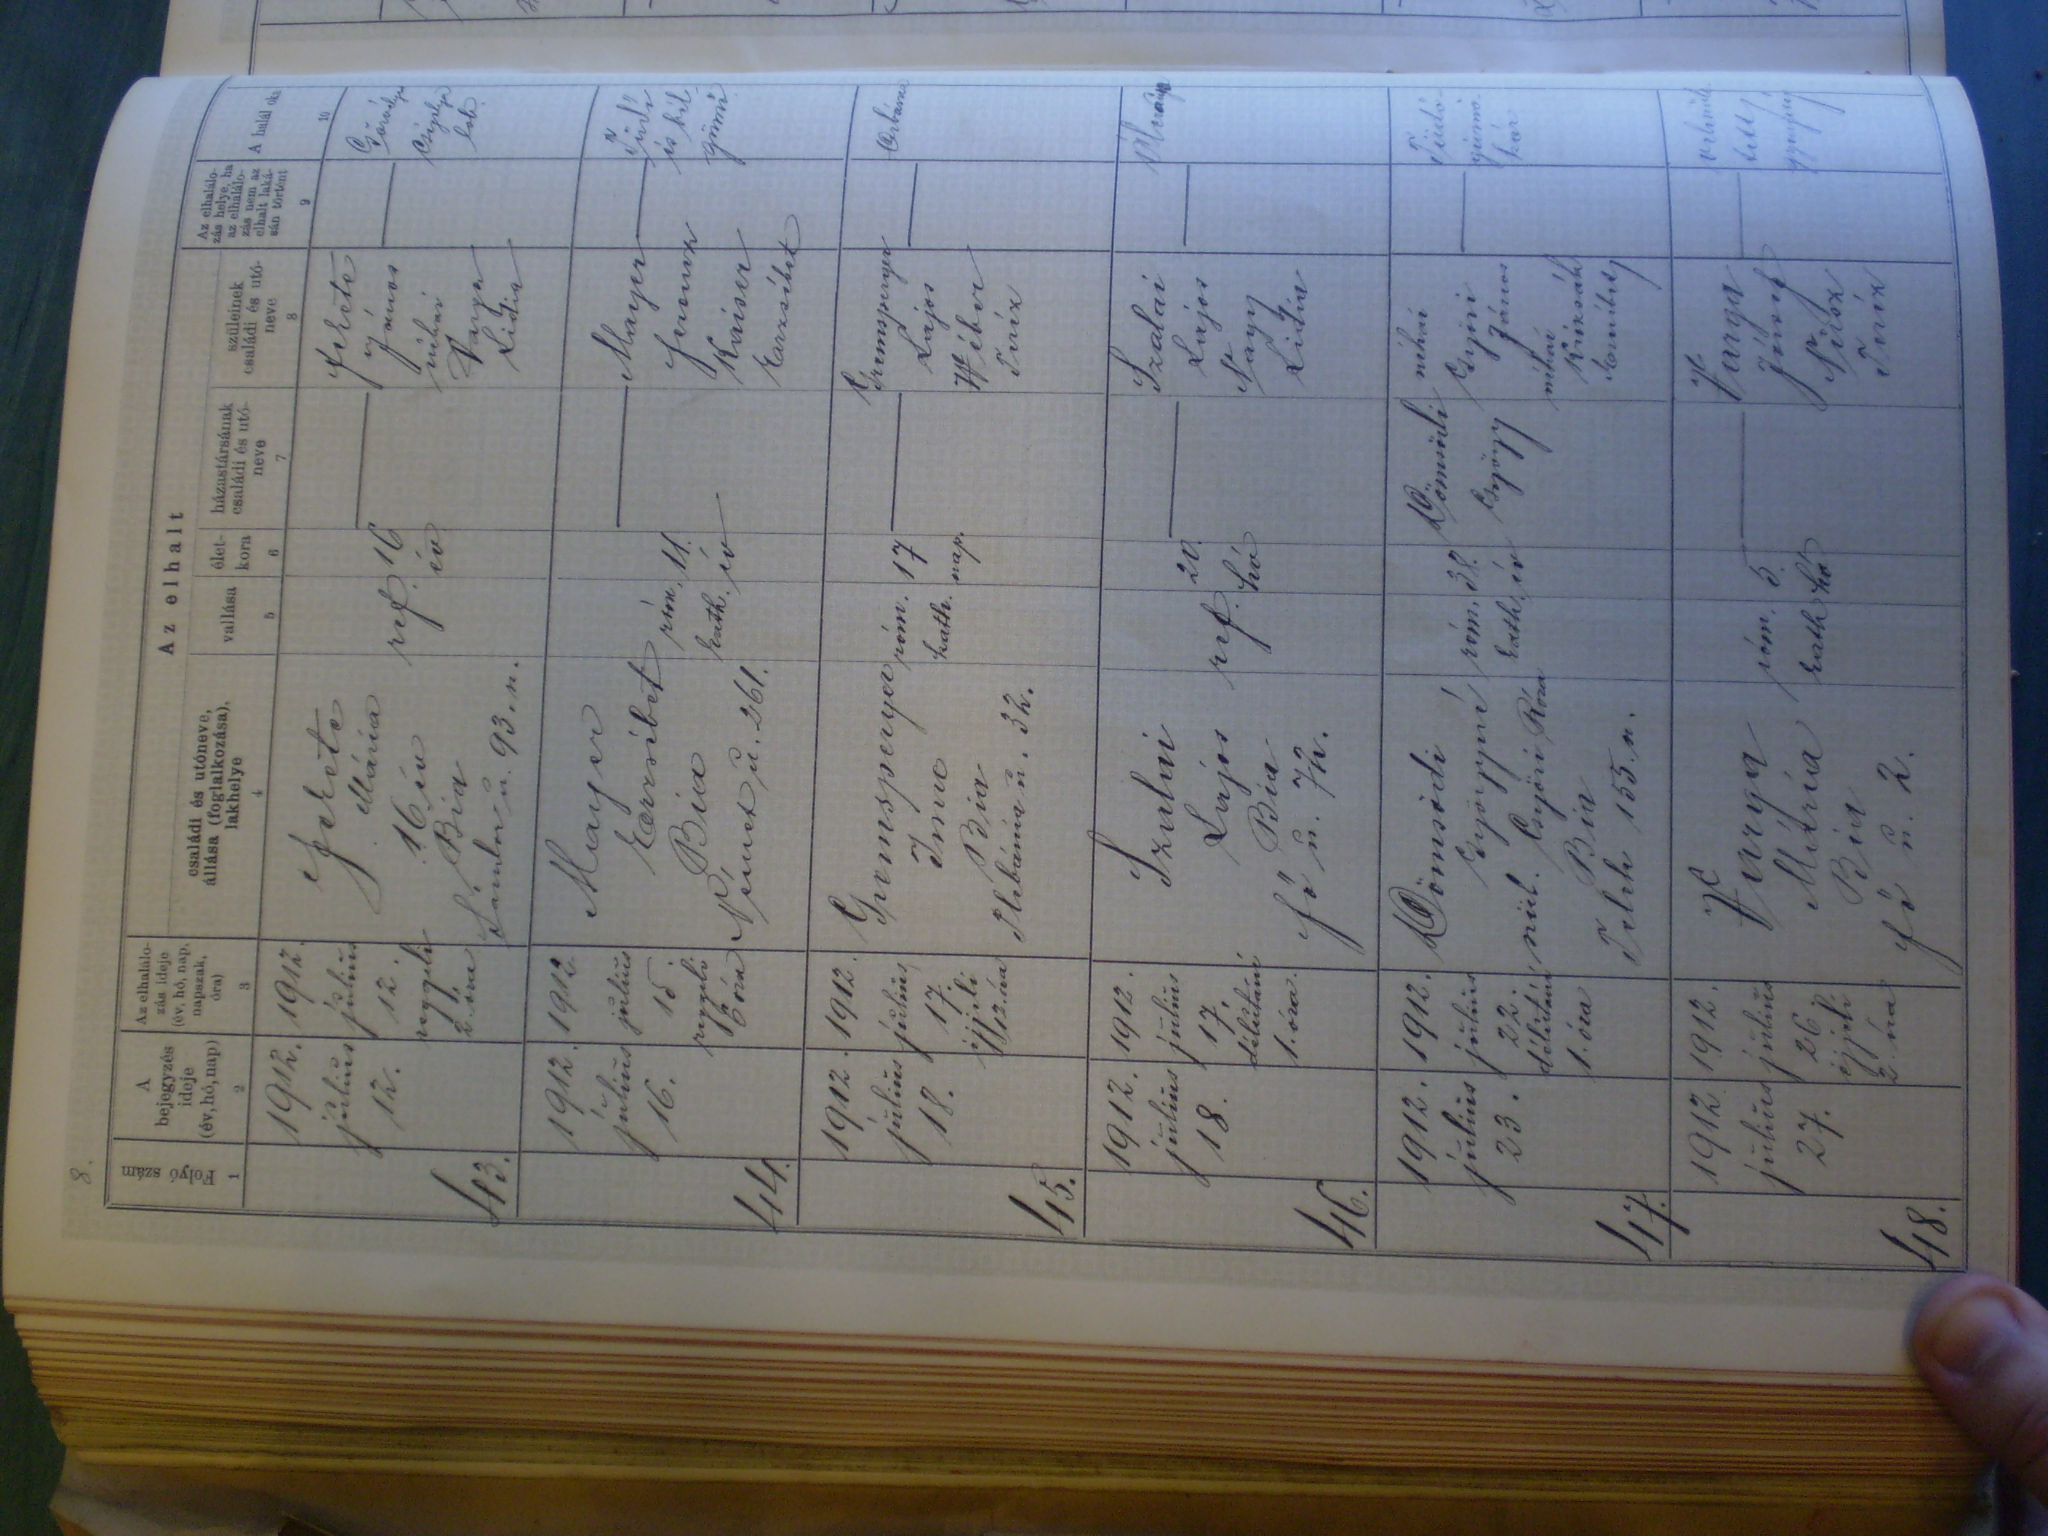 8.
Az elhalt
Folyó szám
A bejegyzés ideje (év, hó, nap)
Az elhalálo-
zás ideje
(év, hó, nap,
napszak,
óra)
családi és utóneve,
állása (foglalkozása),
lakhelye
vallása
élet-
kora
házastársának
családi és utó-
neve
szüleinek
családi és utó-
neve
Az elhalálo-
zás helye, ha
az elhalálo-
zás nem az
elhalt laká-
sán történt
A halál oka
1 2 3 4 5 6 7 8 9 10
43.
1912.
július
12.
1912.
július
12.
reggeli
2 óra
Fekete
Mária
16 év
Bia
93. n.
ref.
16
év
Fekete
János
Varga
Lidia
44.
1912.
július
16.
1912.
július
15
reggeli
6 óra
Mayer
Erzsébet
Bia
Német u. 261.
róm.
kath.
11.
év
Mayer
Ferencz
Kaiser
Erzsébet
45.
1912.
július
18.
1912.
július
17.
éjjeli
12. óra
Gromsperger
Imre
Bia
Plébánia u. 32.
róm.
kath.
17
nap.
Gromsperger
Lajos
Wéber
Teréz
Orbáncz
46.
1912.
július
18.
1912.
július
17.
délutáni
1. óra.
Szalai
Lajos
Bia
Fő u. 72.
ref.
20.
hó
Szalai
Lajos
Nagy
Lidia
47.
1912.
július
23.
1912.
július
22.
délutáni
1. óra
Dömsödi
Györgyné
szül. Róza
Bia
Telek 155. n.
róm.
kath.
38.
év
Dömsödi
György
néhai
János
néhai
Borbála
Tüdő-
gümő-
kór
48.
1912
július
27.
1912.
július
26.
éjjeli
2 óra
Varga
Mária
Bia
Fő u. 2.
róm.
kath.
5.
hó
Varga
József
Teréz